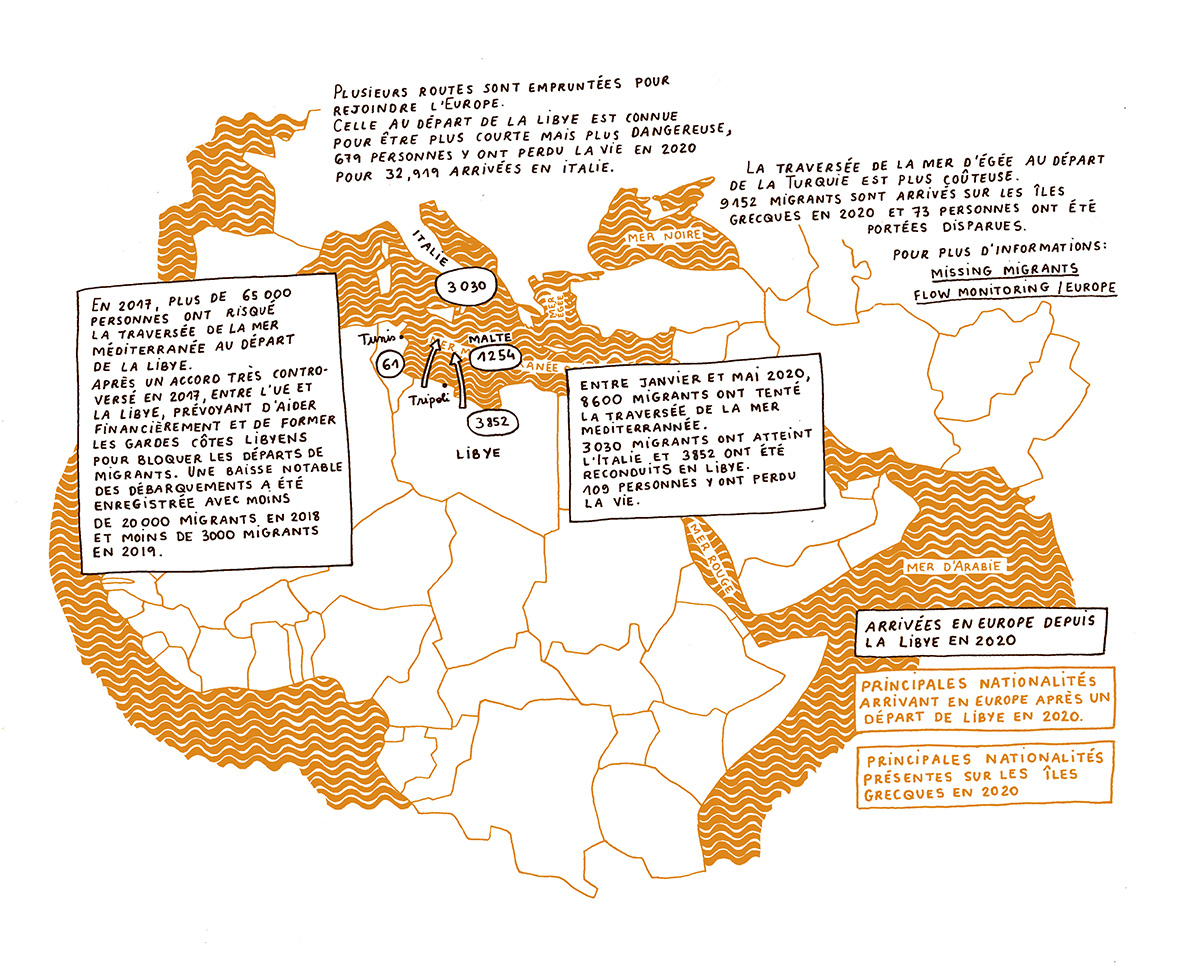 PLUSIEURS ROUTES SONT EMPRUNTÉES POUR
REJOINDRE L'EUROPE.
CELLE AU DÉPART DE LA LIBYE EST CONNUE
POUR ÊTRE PLUS COURTE MAIS PLUS DANGEREUSE,
679 PERSONNES Y ONT PERDU LA VIE EN 2020
POUR 32,919 ARRIVÉES EN ITALIE.
LA TRAVERSÉE DE LA MER D'ÉGÉE AU DÉPART
DE LA TURQUIE EST PLUS COÛTEUSE.
9152 MIGRANTS SONT ARRIVÉS SUR LES ÎLES
GRECQUES EN 2020 ET 73 PERSONNES ONT ÉTÉ
PORTÉES DISPARUES.
POUR PLUS D'INFORMATIONS:
MISSING MIGRANTS
FLOW MONITORING / EUROPE
MER NOIRE
ITALIE
3030
MER ÉGÉE
EN 2017, PLUS DE 65000
PERSONNES ONT RISQUÉ
LA TRAVERSÉE DE LA MER
MÉDITERRANÉE AU DÉPART
DE LA LIBYE.
APRÈS UN ACCORD TRÈS CONTRO-
VERSÉ EN 2017, ENTRE L'UE ET
LA LIBYE, PRÉVOYANT D'AIDER
FINANCIÈREMENT ET DE FORMER
LES GARDES CÔTES LIBYENS
POUR BLOQUER LES DÉPARTS DE
MIGRANTS. UNE BAISSE NOTABLE
DES DÉBARQUEMENTS A ÉTÉ
ENREGISTRÉE AVEC MOINS
DE 20000 MIGRANTS EN 2018
ET MOINS DE 3000 MIGRANTS
EN 2019.
Tunis
61
MALTE
1254
MER M ANÉE
Tripoli
3852
LIBYE
ENTRE JANVIER ET MAI 2020,
8600 MIGRANTS ONT TENTÉ
LA TRAVERSÉE DE LA MER
MEDITERRANNÉE.
3030 MIGRANTS ONT ATTEINT
L'ITALIE ET 3852 ONT ÉTÉ
RECONDUITS EN LIBYE.
109 PERSONNES Y ONT PERDU
LA VIE.
MER ROUGE
MER D'ARABIE
ARRIVÉES EN EUROPE DEPUIS
LA LIBYE EN 2020
PRINCIPALES NATIONALITÉS
ARRIVANT EN EUROPE APRÈS UN
DÉPART DE LIBYE EN 2020.
PRINCIPALES NATIONALITÉS
PRÉSENTES SUR LES ÎLES
GRECQUES EN 2020